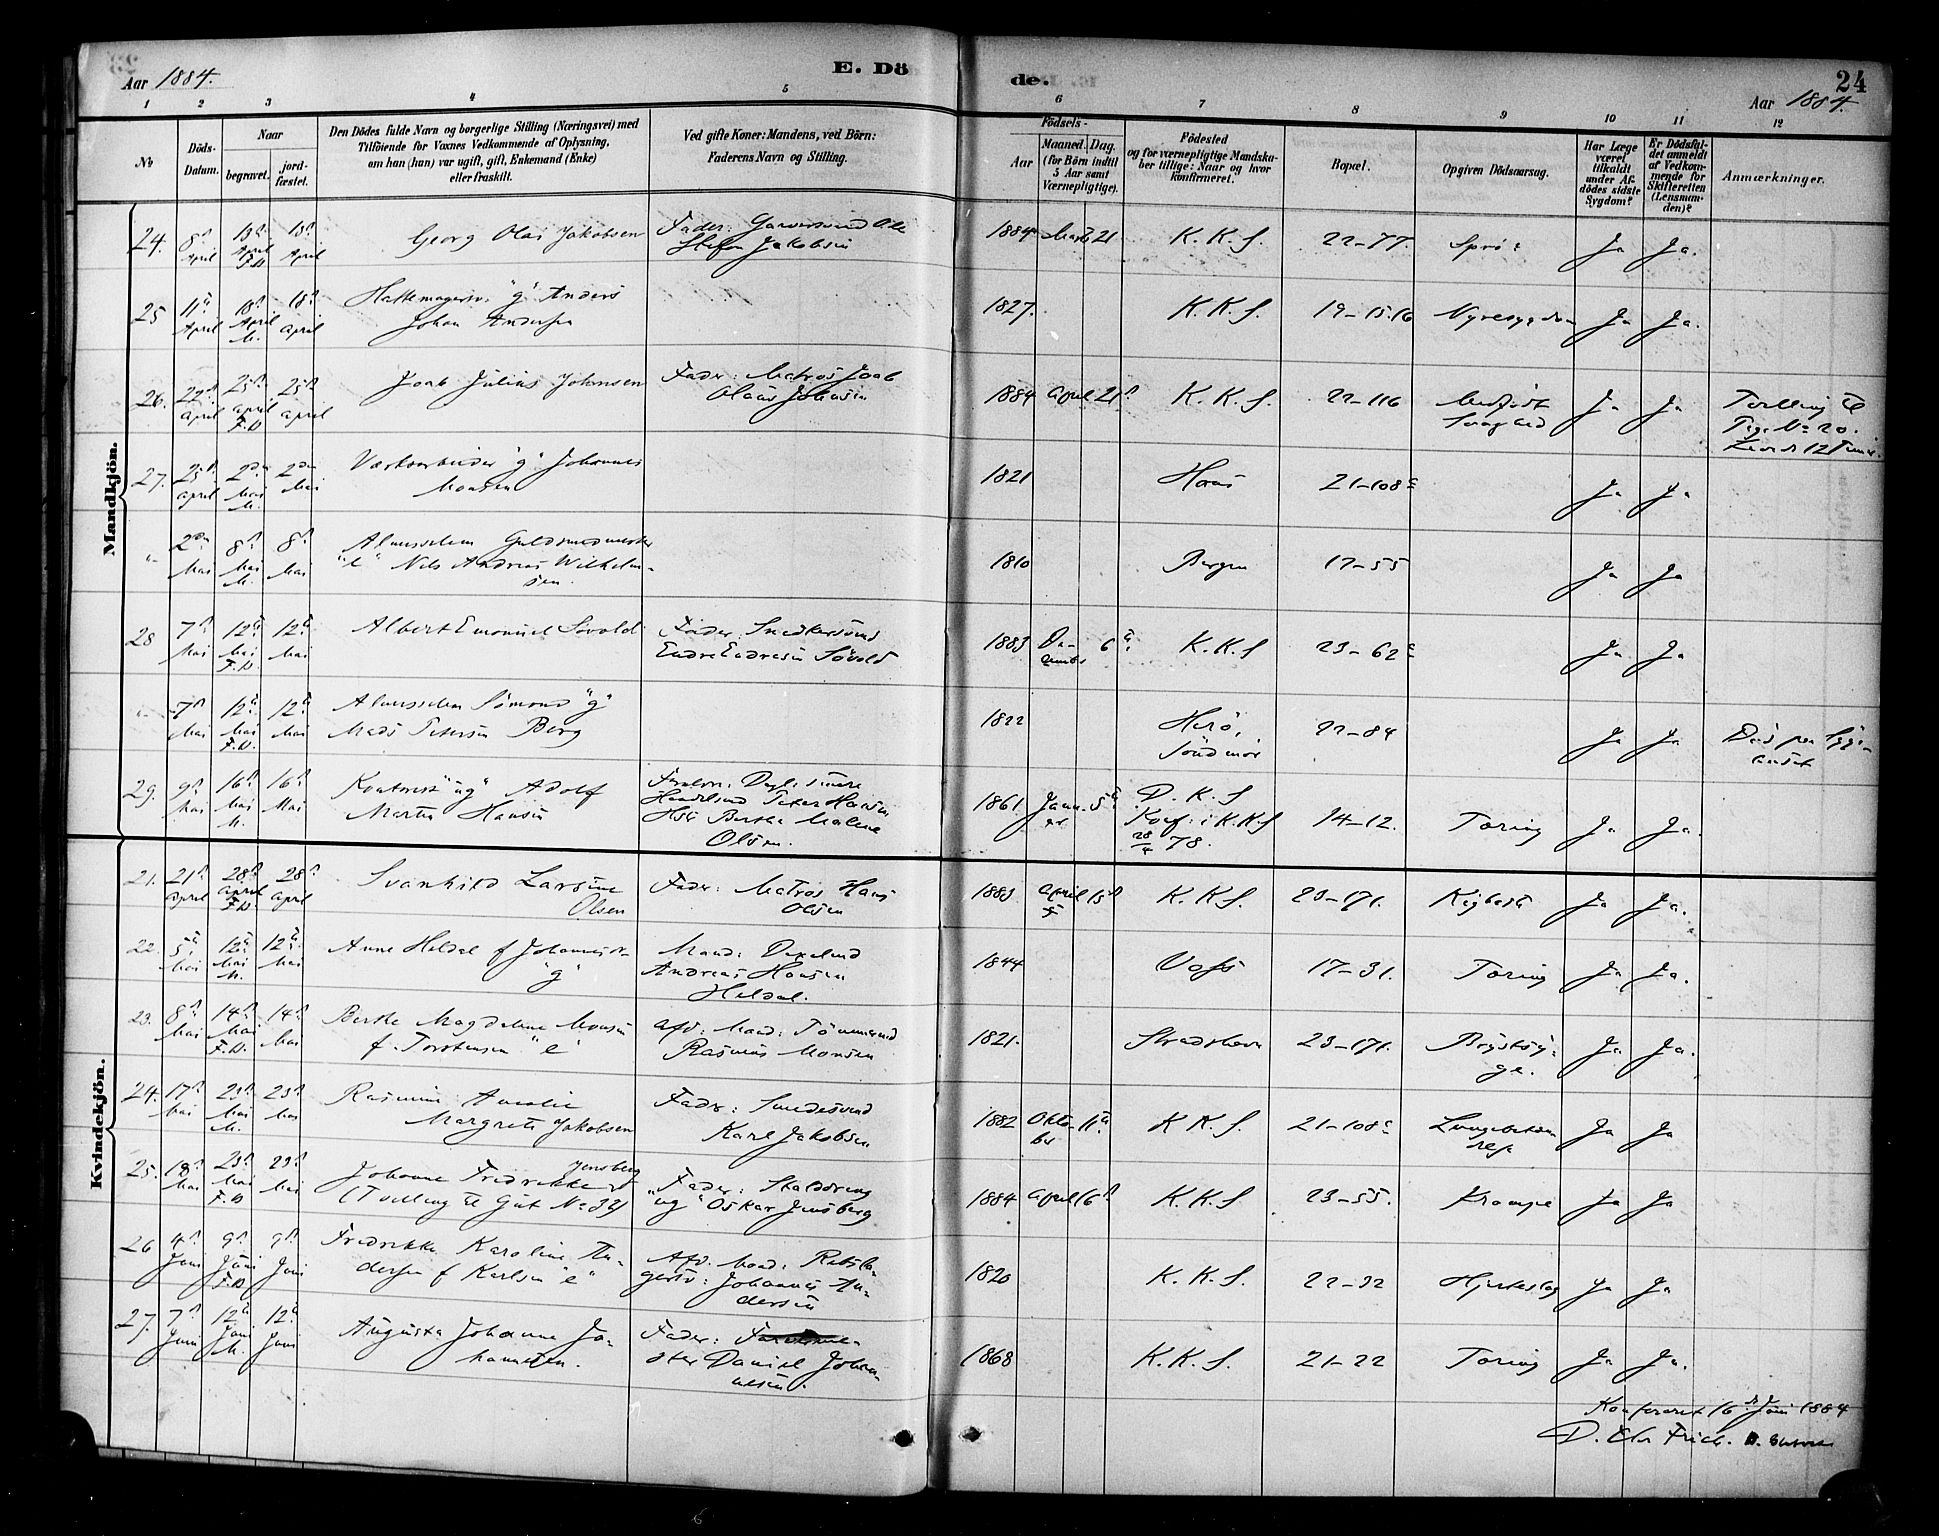 Aar 1884.
E. Dö
de.
24
Aar 1884.
1 2 3 4 5 6 7 8 9 10 11 12
No
Döds-Datum.
Naar
begravet.
jord-fæstet.
Den Dödes fulde Navn og borgerlige Stilling (Næringsvei) med
Tilföiende for Voxnes Vedkommende af Oplysning,
om han (hun) var ugift, gift, Enkemand (Enke)
eller fraskilt.
Ved gifte Koner: Mandens, ved Börn:
Faderens Navn og Stilling.
Födsels-
Aar
Maaned. Dag.
(for Börn indtil
5 Aar samt
Værnepligtige).
Födested
og for værnepligtige Mandska-
ber tillige: Naar og hvor
konfirmeret.
Bopæl.
Opgiven Dödsaarsag.
Har Læge
været
tilkaldt
under Af-
dödes sidste
Sygdom?
Er Dödsfal-
det anmeldt
af Vedkom-
mende for
Skifteretten
(Lensman-
den)?
Anmærkninger.
Mandkjön.
24. 8 April 18 April F.D. 18 April Georg Olai Jakobsen Fader: Jakobsen 1884 Marts 21 K.K.S. 22-77. Ja Ja.
25 11 April 18 April M. 18 April "g" Anders
Johan Andersen 1827. K.K.S. 19-15.16 Nyresygdom Ja Ja.
26. 22 April 25 April F.D. 25 April Joab Julius Johnsen Fader: Matros Joab
Olaus Johnsen 1884 April 21 K.K.S. 22-116 Medfödt
Svaghed Ja Ja Tvilling til
Pige No 20.
27. 25 April 2 Mai M. 2 Mai "g" Johannes
Monsen 1821 21-108 Ja Ja
" 2 Mai 8 Mai M. 8 Mai Guldsmed
"e" Nils Andreas Wilhelm-
sen. 1810 Bergen 17-55 Ja Ja
28 7 Mai 12 Mai F.D. 12 Mai Albert Emanuel Sövold Fader: Snedkersvend
Endre Endresen Sövold 1883 De-
cember 6 K.K.S 23-62 Ja Ja
" 7 Mai 12 Mai F.D. 12 Mai Sömand "g"
Mads Petersen Berg 1822 Herö,
Söndmör 22-84 Ja Ja Död paa Syge-
huset
29. 9 Mai 16 Mai M. 16 Mai "ug" Adolf
Martin Hansen Peter Hansen
Berthe Malene
Olsen. 1861 Janu-
ar 5 D.K.S
Konf. i K.K.S
28/4 78. 14-12. Tæring Ja Ja.
Kvindekjön.
21. 21 April 28 April F.D. 28 April Svanhild Larsine
Olsen Fader: Matros Hans
Olsen 1883 April 15 K.K.S. 23-171. Kighoste Ja Ja.
22. 5 Mai 12 Mai M. 12 Mai Anne Heldal f Johannesdr
"g" Mand:
Andreas Hansen
Heldal. 1844 Voss 17-31. Tæring Ja Ja.
23. 8 Mai 14 Mai F.D. 14 Mai Berthe Magdalene Monsen
f. Torstensen "e" Afd: Mand: Tömmermd
Rasmus Monsen 1821. Strudshavn 23-171. Brystsy-
ge. Ja Ja.
24. 17 Mai 23 Mai M. 23 Mai Rasmine Amalie
Margrete Jakobsen Fader: Smedesvend
Karl Jakobsen 1882 Okto-
ber 11 K K.S. 21-108 Lungebetæn-
delse Ja Ja
25. 18 Mai 23 Mai F.D 23 Mai Johanne Fredrikke Jensberg
(Tvilling til Gut No 34) Fader:
"ug" Oskar Jensberg 1884 April 6 K.K.S 23-55. Krampe Ja Ja
26 4 Juni 9 Juni F.D. 9 Juni Fredrikke Karoline An-
dersen f Karlsen "e" Afd. Mand: Rebsla-
gersv: Johannes An-
dersen 1820 K.K.S. 22-32 Hjerteslag Ja Ja
27. 7 Juni 12 Juni M. 12 Juni Augusta Johanne Jo-
hannesen. Fader:
Daniel Johan-
nesen. 1868 K.K.S. 21-22 Tæring Ja Ja.
Konfereret 16 Juni 1884